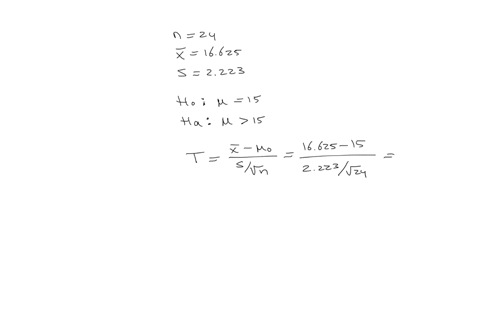 n = 24
x̄ = 16.625
S = 2.223
Ho: μ = 15
Ha: μ > 15
T = (x̄ - μo)/(s/√n) = (16.625 - 15)/(2.223/√24) =